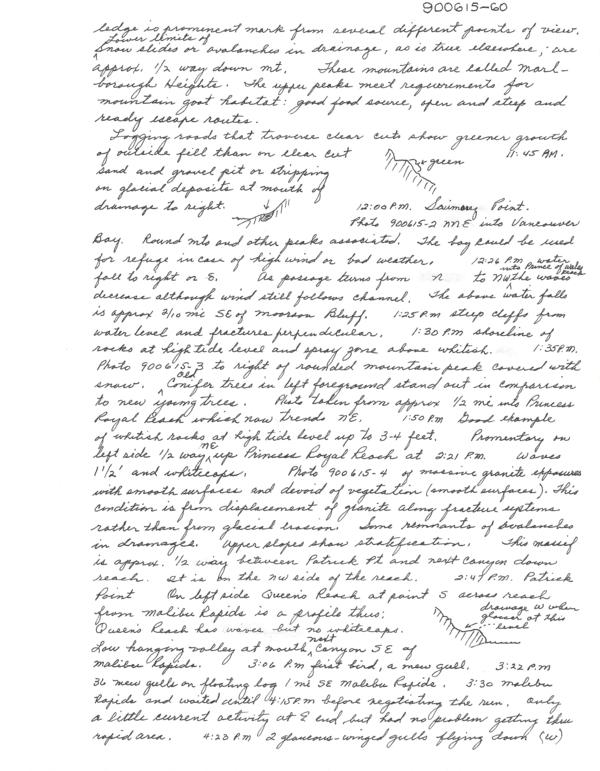 900615-60
ledge is prominent mark from several different points of view.
Lower limits of
Snow slides or avalanches in drainage, as is true elsewhere, are
approx. 1/2 way down mt. These mountains are called Marl-
borough Heights. The upper peaks meet requirements for
mountain goat habitat: good food source, open and steep and
ready escape routes.
Logging roads that traverse clear cuts show greener growth
of outside fill than on clear cut green 11:45 AM.
sand and gravel pit or stripping
on glacial deposits at mouth of
drainage to right. 12:00 P.M. Point.
Photo 900615-2 NNE into Vancouver
Bay. Round mts and other peaks associated. The bay could be used
for refuge in case of high wind or bad weather. 12:26 P.M. water
fall to right or E. As passage turns from N to NW into Prince of Wales Reach the waves
decrease although wind still follows channel. The above water falls
is approx 2/10 mi SE of Moorsam Bluff. 1:25 P.M. steep cliffs from
water level and fractures perpendicular. 1:30 P.M. shoreline of
rocks at high tide level and spray zone above whitish. 1:35 P.M.
Photo 900615-3 to right of rounded mountain peak covered with
snow. Old Conifer trees in left foreground stand out in comparison
to new young trees. Photo taken from approx 1/2 mi into Princess
Royal Reach which now trends NE. 1:50 P.M. Good example
of whitish rocks at high tide level up to 3-4 feet. Promentary on
left side 1/2 way NE up Princess Royal Reach at 2:21 P.M. Waves
1 1/2' and whitecaps. Photo 900615-4 of massive granite exposures
with smooth surfaces and devoid of vegetation (smooth surfaces). This
condition is from displacement of granite along fracture systems
rather than from glacial erosion. Some remnants of avalanches
in drainages. Upper slopes show stratification. This massif
is approx. 1/2 way between Patrick Pt and next Canyon down
reach. It is on the NW side of the reach. 2:47 P.M. Patrick
Point On left side Queens Reach at point S across reach
from Malibu Rapids is a profile thus: drainage W when
glacier at this
level
Queens Reach has waves but no whitecaps.
Low hanging valley at mouth next Canyon SE of
Malibu Rapids. 3:06 P.M. first bird, a mew gull. 3:22 P.M
36 mew gulls on floating log 1 mi SE Malibu Rapids. 3:30 Malibu
Rapids and waited until 4:15 P.M before negotiating the run. Only
a little current activity at E end but had no problem getting thru
rapid area. 4:23 P.M 2 glaucous-winged gulls flying down (W)